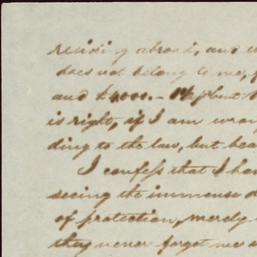 residing abroad, and
does not belong to me,
and £4000.-
is right, if I am wron
ding to the law, but hea
I confess that I ha
seeing the immense
of protection, merely
they never forget me